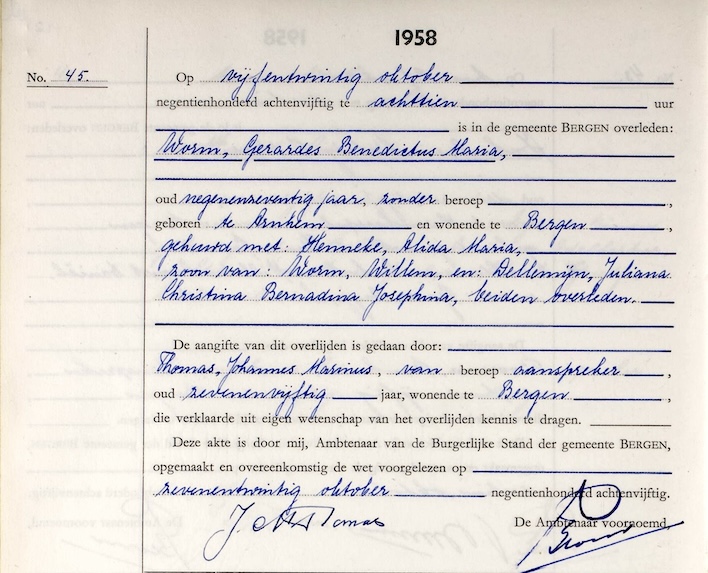 1958
No. 45.
Op vijfentwintig oktober
negentienhonderd achtenvijftig te achttien uur
is in de gemeente BERGEN overleden:
Worm, Gerardes Benedictus Maria,
oud negenenzeventig jaar, zonder beroep ,
geboren te Arnhem en wonende te Bergen ,
gehuwd met: Henneke, Alida Maria,
zoon van: Worm, Willem, en: Dellemijn, Juliana
Christina Bernadina Josephina, beiden overleden.
De aangifte van dit overlijden is gedaan door:
Thomas, Johannes Marinus, van beroep aanspreker ,
oud zevenenvijftig jaar, wonende te Bergen ,
die verklaarde uit eigen wetenschap van het overlijden kennis te dragen.
Deze akte is door mij, Ambtenaar van de Burgerlijke Stand der gemeente BERGEN,
opgemaakt en overeenkomstig de wet voorgelezen op
zevenentwintig oktober negentienhonderd achtenvijftig.
De Ambtenaar voornoemd,